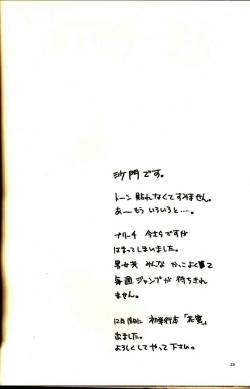 沙門です。
トーン貼れなくてすみません。
あ〜もういろいろと…。
ブリーチ 今さらですが
はまってしまいました。
男女共 みんな かっこよく夢で
毎週ジャンプが待ちきれ
ません。
12月18日に 初単行本「
出ました。
よろしくしてやって下さい。